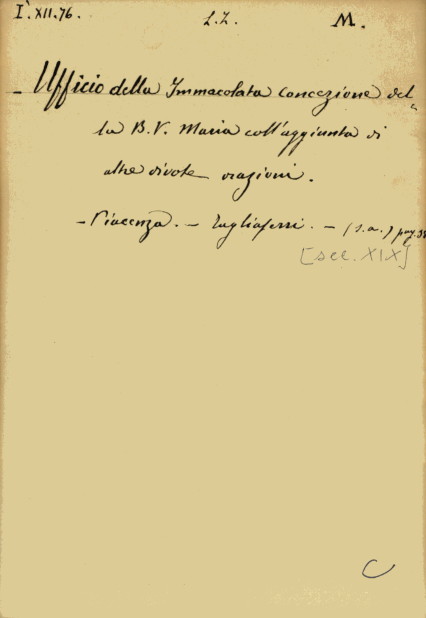 I.XII.76. L.L. M.
Ufficio della Immacolata concezione del-
la B. V. Maria coll'aggiunta di
altre divote orazioni.
- Piacenza. - Tagliaferri. - (s.a.) pag.
[sec. XIX]
C